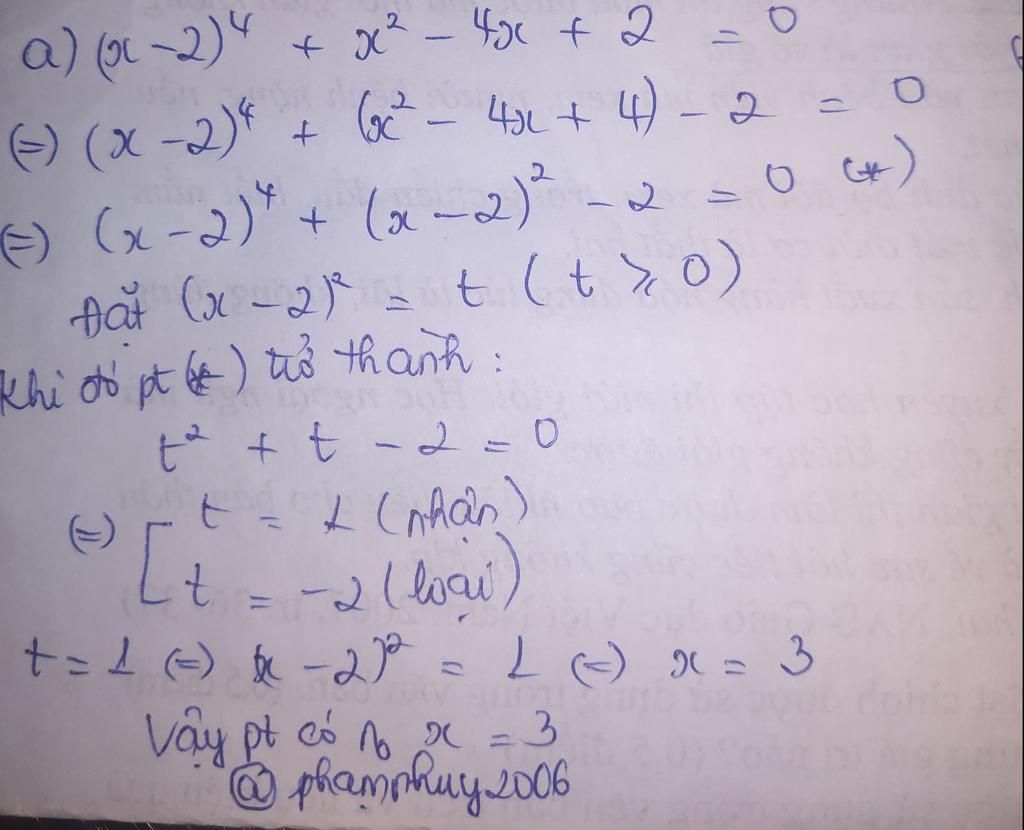 a) (x - 2)⁴ + x² - 4x + 2 = 0
(=) (x - 2)⁴ + (x² - 4x + 4) - 2 = 0
(=) (x - 2)⁴ + (x - 2)² - 2 = 0 (*)
Đặt (x - 2)² = t (t ⩾ 0)
Khi đó pt (*) trở thành :
t² + t - 2 = 0
(=) [ t = 1 (nhận)
t = -2 (loại)
t = 1 (=) (x - 2)² = 1 (=) x = 3
Vậy pt có n₀ x = 3
@ phamnhuy2006